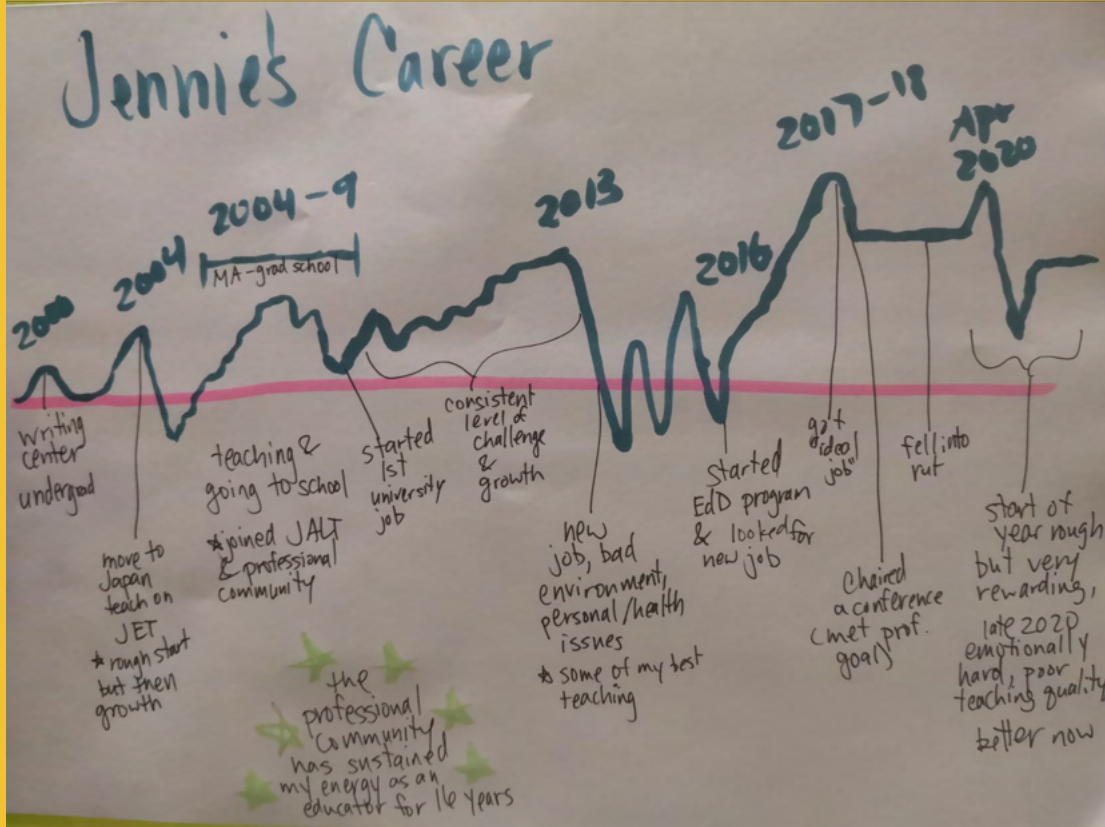 Jennie's Career
2000
2004
2004-9
MA-grad school
2013
2016
2017-18
Apr
2020
writing
center
undergrad
move to
Japan
teach on
JET
* rough start
but then
growth
teaching &
going to school
* joined JALT
& professional
community
started
1st
university
job
consistent
level of
challenge
&
growth
new
job, bad
environment,
personal/health
issues
* some of my best
teaching
started
EdD program
& looked for
new job
got
"ideal
job"
chaired
a conference
(met prof.
goal)
fell into
rut
start of
year rough
but very
rewarding,
late 2020
emotionally
hard, poor
teaching quality
better now
the
professional
community
has sustained
my energy as an
educator for 16 years